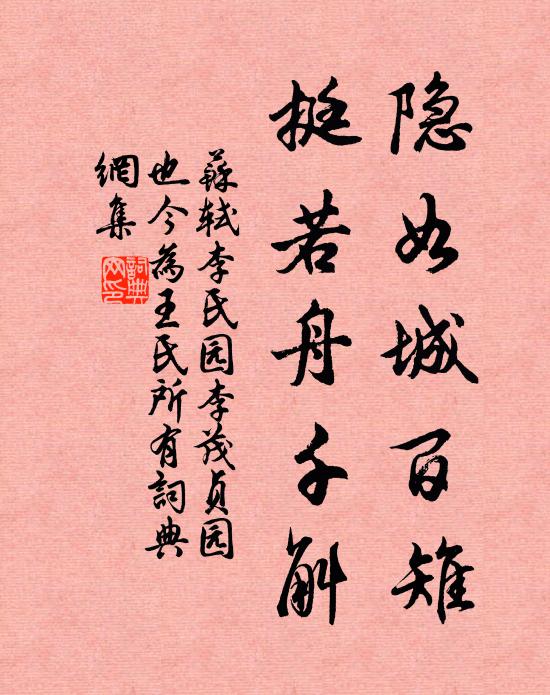 隐如城百雉
挺若舟千斛
蘇轼李氏园李茂贞园
也今為王氏所有詞典
網集
詞典網印